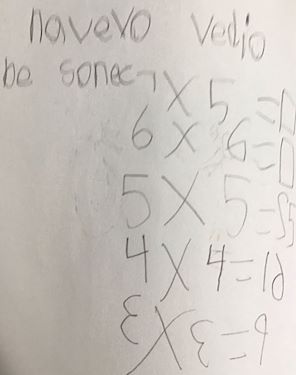 navevo vedio
be sonec
7 X 5 =
6 X 6 =
5 X 5 =
4 X 4 = 16
3 X 3 = 9